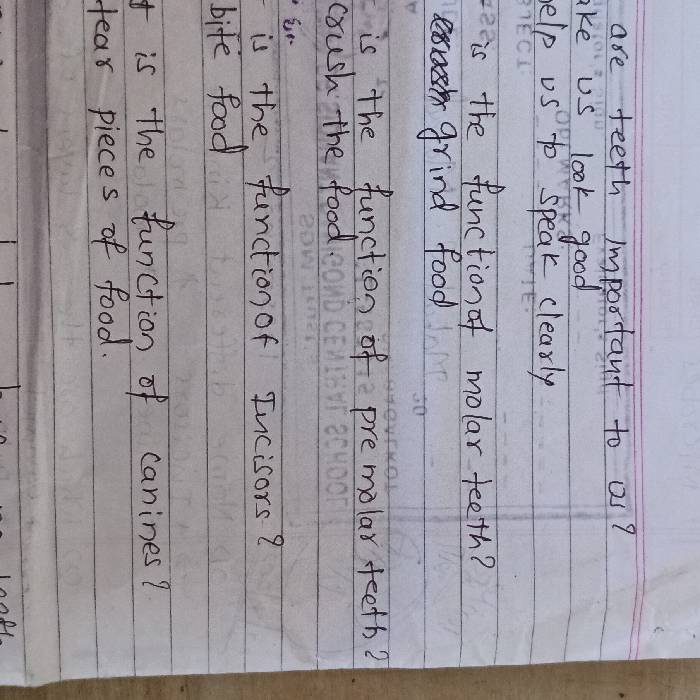 are teeth important to us?
ake us look good
elp us to speak clearly
is the function of molar teeth?
grind food
is the function of pre molar teeth?
crush the food.
is the function of Incisors?
bite food
t is the function of canines?
tear pieces of food.